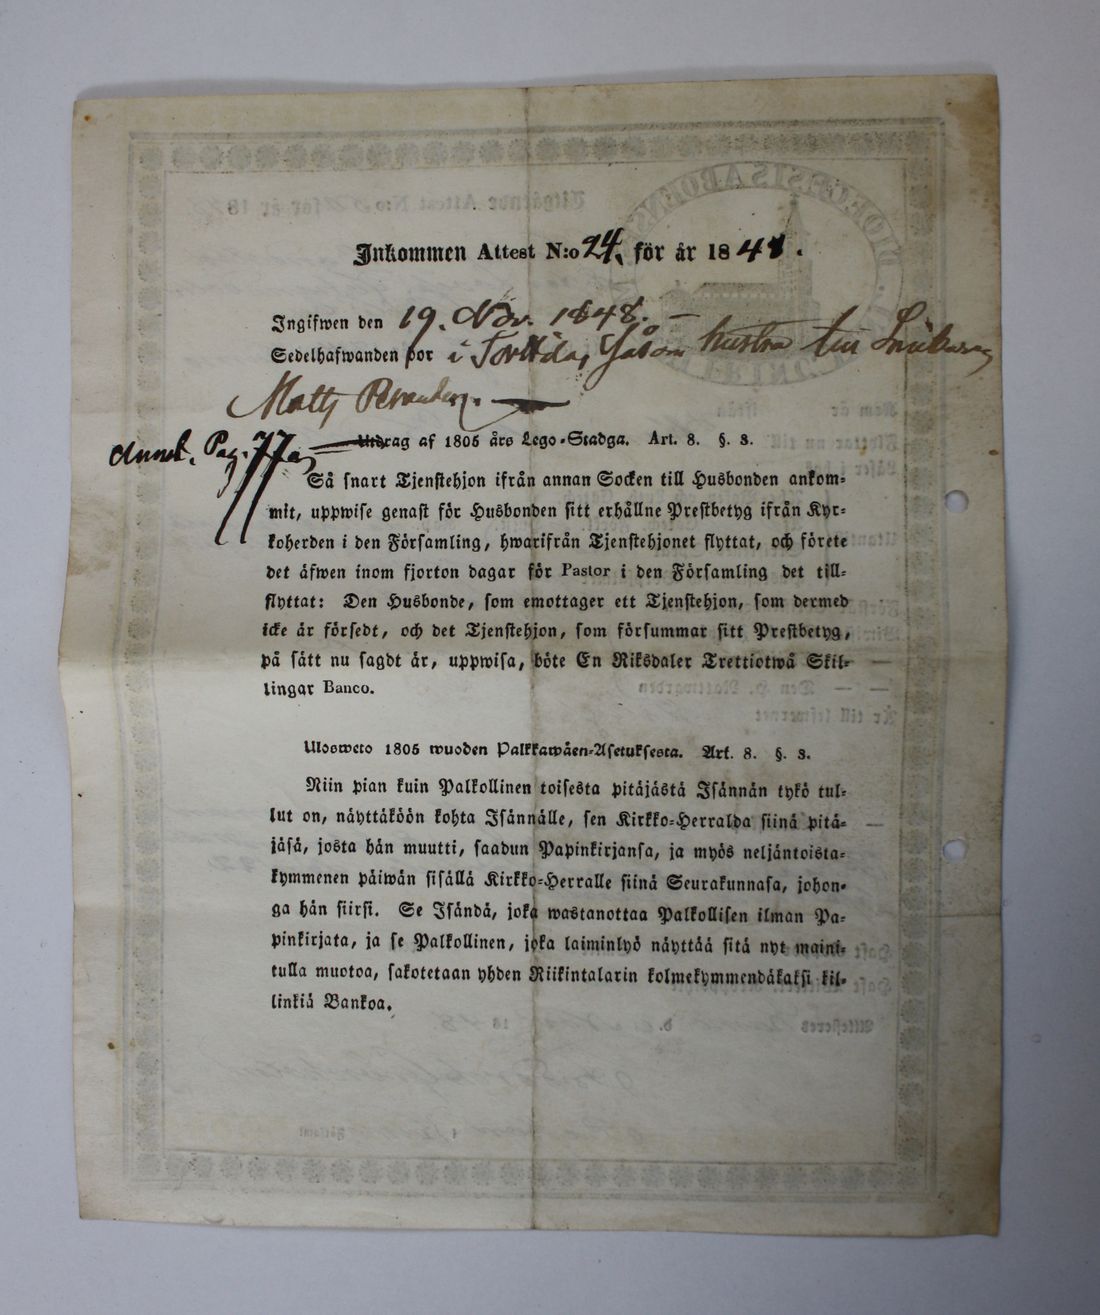 Inkommen Attest N:o 24. för år 1848.
Ingifwen den 19. Nov. 1848. —
Sedelhafwanden bor i hustru
Matts
Annot. Pag. 77
Utdrag af 1805 års Lego-Stadga. Art. 8. §. 3.
Så snart Tjenstehjon ifrån annan Socken till Husbonden ankom-
mit, uppwise genast för Husbonden sitt erhållne Prestbetyg ifrån Kyr-
koherden i den Församling, hwarifrån Tjenstehjonet flyttat, och förete
det äfwen inom fjorton dagar för Pastor i den Församling det till-
flyttat: Den Husbonde, som emottager ett Tjenstehjon, som dermed
icke är försedt, och det Tjenstehjon, som försummar sitt Prestbetyg,
på sätt nu sagdt är, uppwisa, böte En Riksdaler Trettiotwå Skil-
lingar Banco.
Ulosweto 1805 wuoden Palkkawäen-Asetuksesta. Art. 8. §. 3.
Niin pian kuin Palkollinen toisesta pitäjästä Isännän tykö tul-
lut on, näyttäköön kohta Isännälle, sen Kirkko-Herralda siinä pitä-
jäsä, josta hän muutti, saadun Papinkirjansa, ja myös neljäntoista-
kymmenen päiwän sisällä Kirkko-Herralle siinä Seurakunnasa, johon-
ga hän siirsi. Se Isändä, joka wastanottaa Palkollisen ilman Pa-
pinkirjata, ja se Palkollinen, joka laiminlyö näyttää sitä nyt maini-
tulla muotoa, sakotetaan yhden Riikintalarin kolmekymmendäkaksi kil-
linkiä Bankoa.